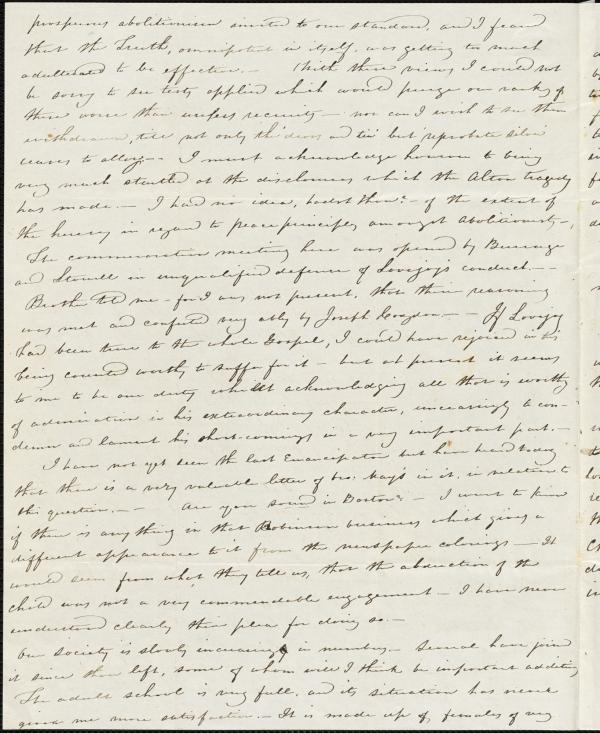 prosperous abolitionism invited to our standard, and I feared
that the Truth, omnipotent in itself, was getting too much
adulterated to be effective.— With these views I could not
be sorry to see tests applied which would purge our ranks of
these worse than useless recruits— nor can I wish to see them
withdrawn, till not only the dross and tin but reprobate silver
ceases to alloy.— I must acknowledge however to being
very much startled at the disclosures which the Alton tragedy
has made.— I had no idea, hadst thou?— of the extent of
the heresy in regard to peace principles amongst abolitionists—,
The commemoration meeting here was opened by Burrage
and Stowell in unqualified defence of Lovejoy's conduct.—
Brother told me—for I was not present, that their reasoning
was met and confuted very ably by Joseph Congdon.— — If Lovejoy
had been true to the whole Gospel, I could have rejoiced in his
being counted worthy to suffer for it— but at present it seems
to me to be our duty whilst acknowledging all that is worthy
of admiration in his extraordinary character, unceasingly to con-
demn and lament his short-comings in a very important part.—
I have not yet seen the last Emancipator but have heard today
that there is a very valuable letter of bro: May's in it, in relation to
this question.— — Are you sound in Boston?— I want to know
if there is anything in that Robinson business which gives a
different appearance to it from the newspaper colorings— It
would seem from what they tell us, that the abduction of the
child was not a very commendable engagement— I have never
understood clearly their plea for doing so.—
Our society is slowly increasing in numbers. Several have join'd
it since thou left, some of whom will I think be important additions,
The adult school is very full, and its situation has never
given me more satisfaction.— It is made up of females of very